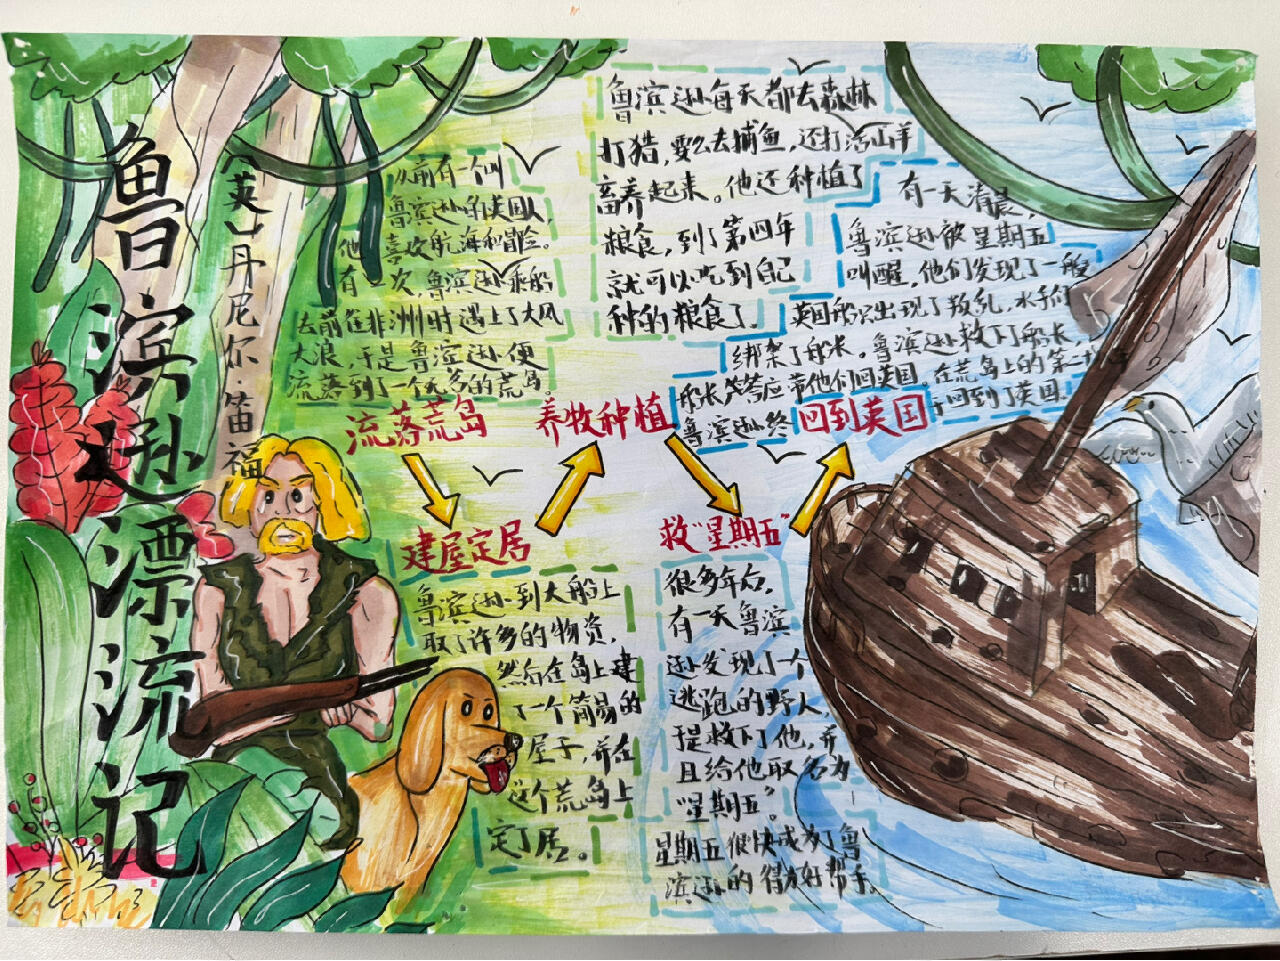 鲁滨逊漂流记
（英）丹尼尔·笛福
从前有一个叫
鲁滨逊的英国人，
他喜欢航海和冒险。
有一次，鲁滨逊乘船
去前往非洲时遇上了大风
大浪，于是鲁滨逊便
流落到了一个无名的荒岛。
流落荒岛
建屋定居
鲁滨逊到大船上
取了许多的物资，
然后在岛上建
了一个简易的
屋子，并在
这个荒岛上
定了居。
养牧种植
鲁滨逊每天都去森林
打猎，要么去捕鱼，还打活山羊
畜养起来。他还种植了
粮食，到了第四年
就可以吃到自己
种的粮食了。
救“星期五”
很多年后，
有一天鲁滨
逊发现了一个
逃跑的野人，
于是救下了他，并
且给他取名为
“星期五”。
星期五很快成为了鲁
滨逊的得力好帮手。
回到英国
有一天清晨，
鲁滨逊被星期五
叫醒，他们发现了一艘
英国船只出现了叛乱，水手们
绑架了船长。鲁滨逊救下了船长，
船长答应带他们回英国。在荒岛上的第二十
鲁滨逊终于回到了英国。